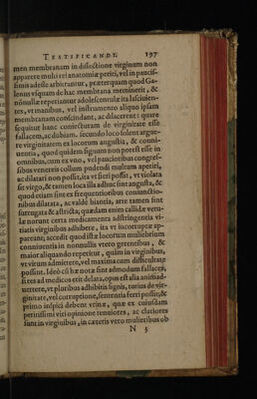 TESTIFICANDI. 197
men membranam in dissectione virginum non
apparere multi rei anatomicæ periti, vel in paucis-
simis adesse arbitrantur, præterquam quod Ga-
lenus usquam de hac membrana meminerit, &
nonnullæ reperiantur adolescentulæ ita lasciuien-
tes, vt manibus, vel instrumento aliquo ipsam
membranam conscindant, ac dilacerent: quare
sequitur hanc coniecturam de virginitate esse
fallacem, ac dubiam. secundo loco solent argue-
re virginitatem ex locorum angustia, & conni-
uentia, quod quidem signum non potest esse in
omnibus, cum ex vno, vel paucioribus congres-
sibus venereis collum pudendi multum aperiri,
ac dilatari non possit, ita vt fieri possit, vt violata
sit virgo, & tamen loca illa adhuc sint angusta, &
quod etiam sint ex frequentioribus coniunctio-
nibus dilatata, ac valde hiantia, arte tamen sint
& astricta; quædam enim callidæ vetu-
læ norunt certa medicamenta adstringentia vi-
tiatis virginibus adhibere, ita vt incorruptæ ap-
pareant; accedit quod istæ locorum muliebrium
conniuentia in nonnullis vtero gerentibus, &
maior aliquando reperitur, quàm in virginibus,
vt virum admittere, vel maxima cum difficultate
possint. Ideò cù hæ notæ sint admodum fallaces,
si res ad medicos erit delata, opus est alia animad-
uertere, vt pluribus adhibitis signis, tutius de vir-
ginitate, vel corruptione, sententia ferri possit; &
primo inspici debent vrinæ, quæ ex cuiusdam
peritissimi viri opinione tenuiores, ac clariores
sunt in virginibus, in cæteris vero mulieribus ob
N 3